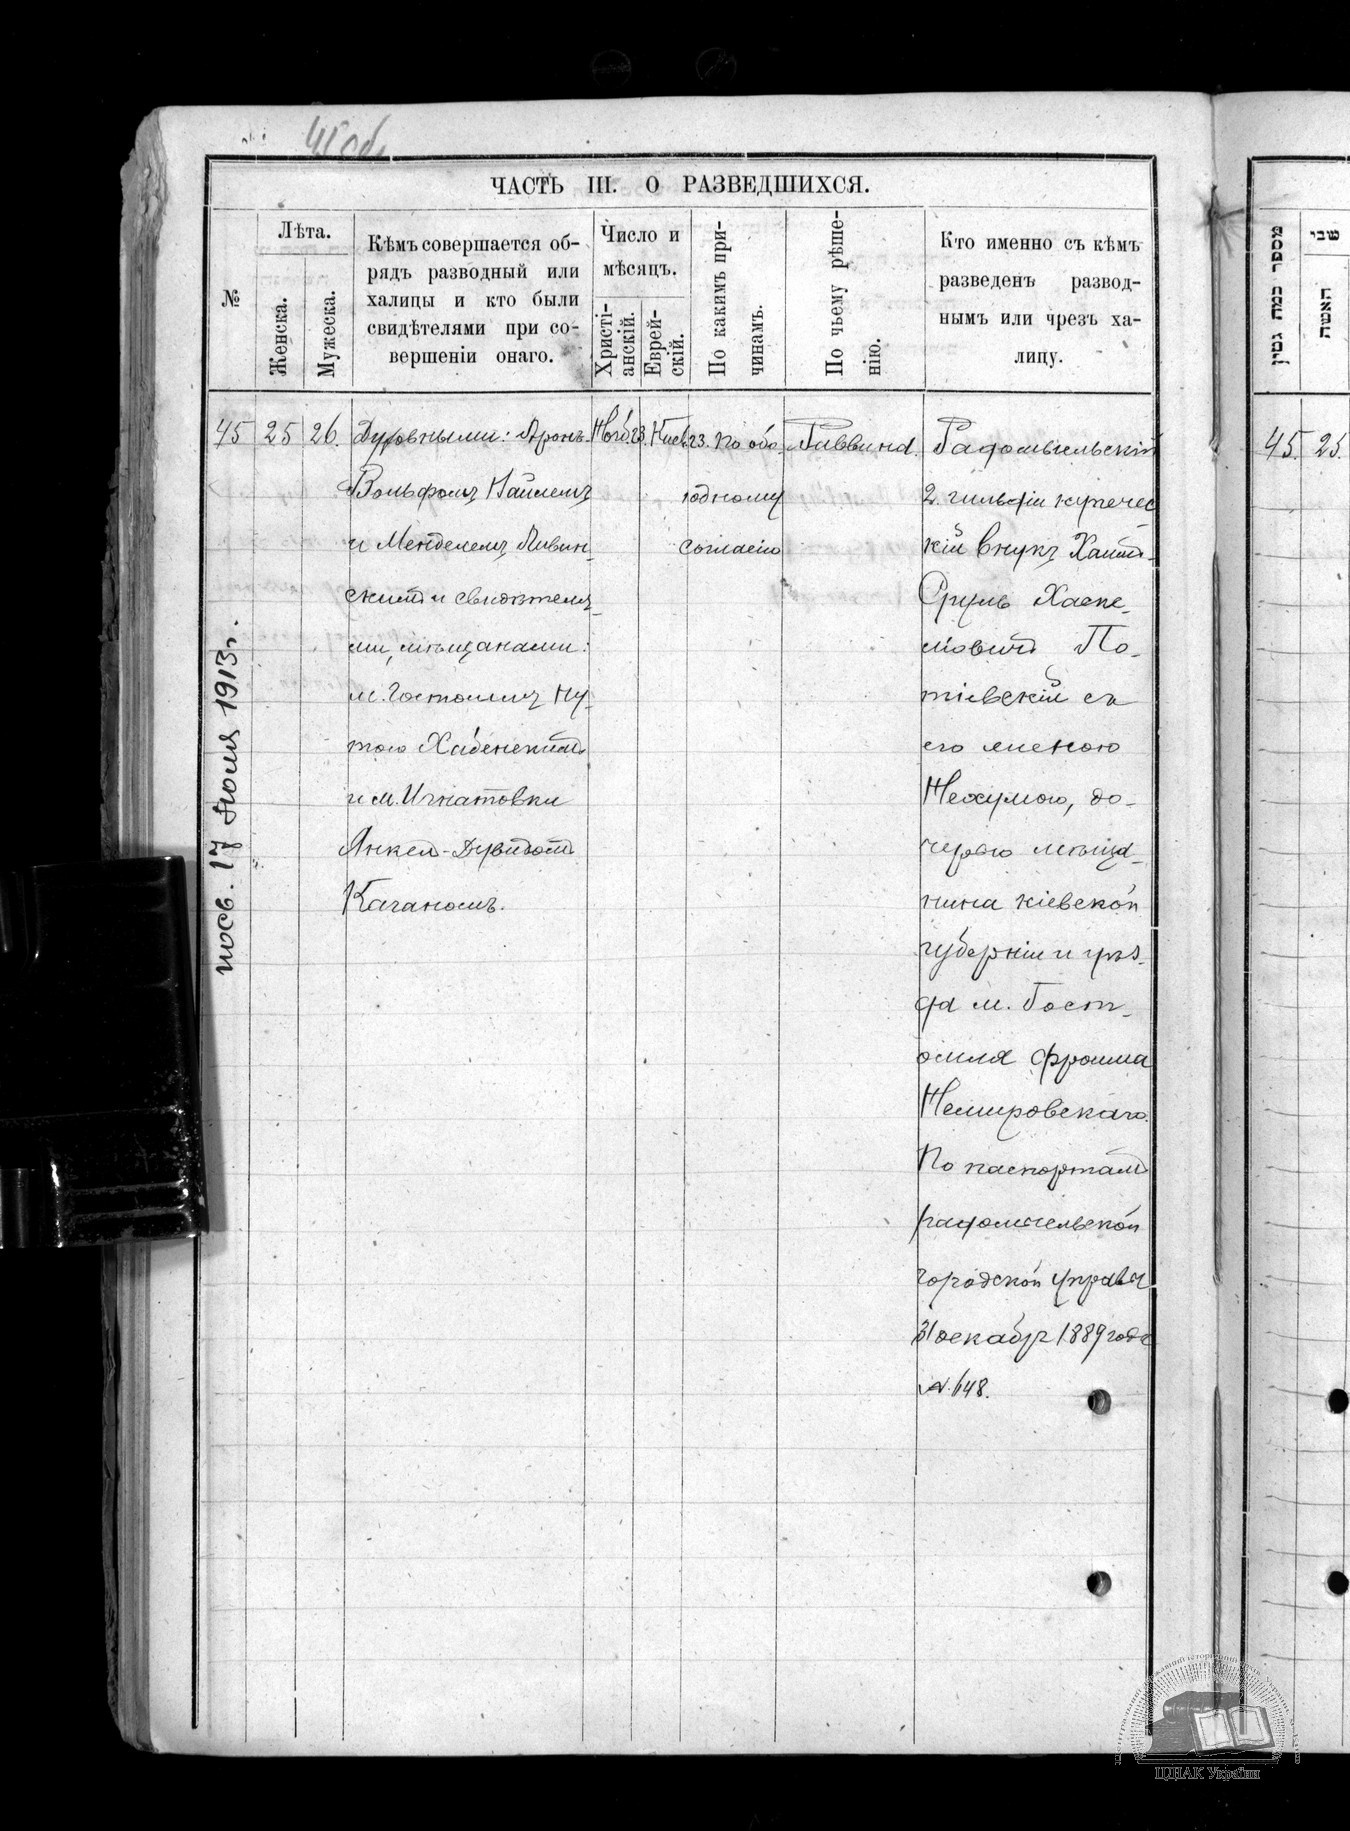 45 об.
ЧАСТЬ III. О РАЗВЕДШИХСЯ.
№
Лѣта.
Женска.
Мужеска.
Кѣмъ совершается об-
рядъ разводный или
халицы и кто были
свидѣтелями при со-
вершеніи онаго.
Число и
мѣсяцъ.
Христі-
анскій.
Еврей-
скій.
По какимъ при-
чинамъ.
По чьему рѣше-
нію.
Кто именно съ кѣмъ
разведенъ развод-
нымъ или чрезъ ха-
лицу.
45
25
26.
Духовными: Аронъ
Вольфомъ
и Менделемъ
скимъ и свидѣтеля-
ми, мѣщанами:
м. Гостомля Ну-
тою Хабенскимъ
и м. Игнатовки
Янкел-Дувидомъ
Каганомъ.
23.
По обо-
юдному
согласію
Раввина.
Радомысльскій
2 гильдіи купечес
кій внукъ Хаим-
Сруль Хаске-
лiовичъ По-
тіевскій съ
его женою
Нехумою, до-
черью мѣща-
нина кіевской
губерніи и уѣз-
да м. Гост-
омля Фроима
Немировскаго.
По паспортамъ
радомысльской
городской управы
31 декабря 1889 года
№ 648.
посв. 17 Июля 1913 г.
מספר כמה גטין
שני
האשה
45.
25.
ЦДІАК України